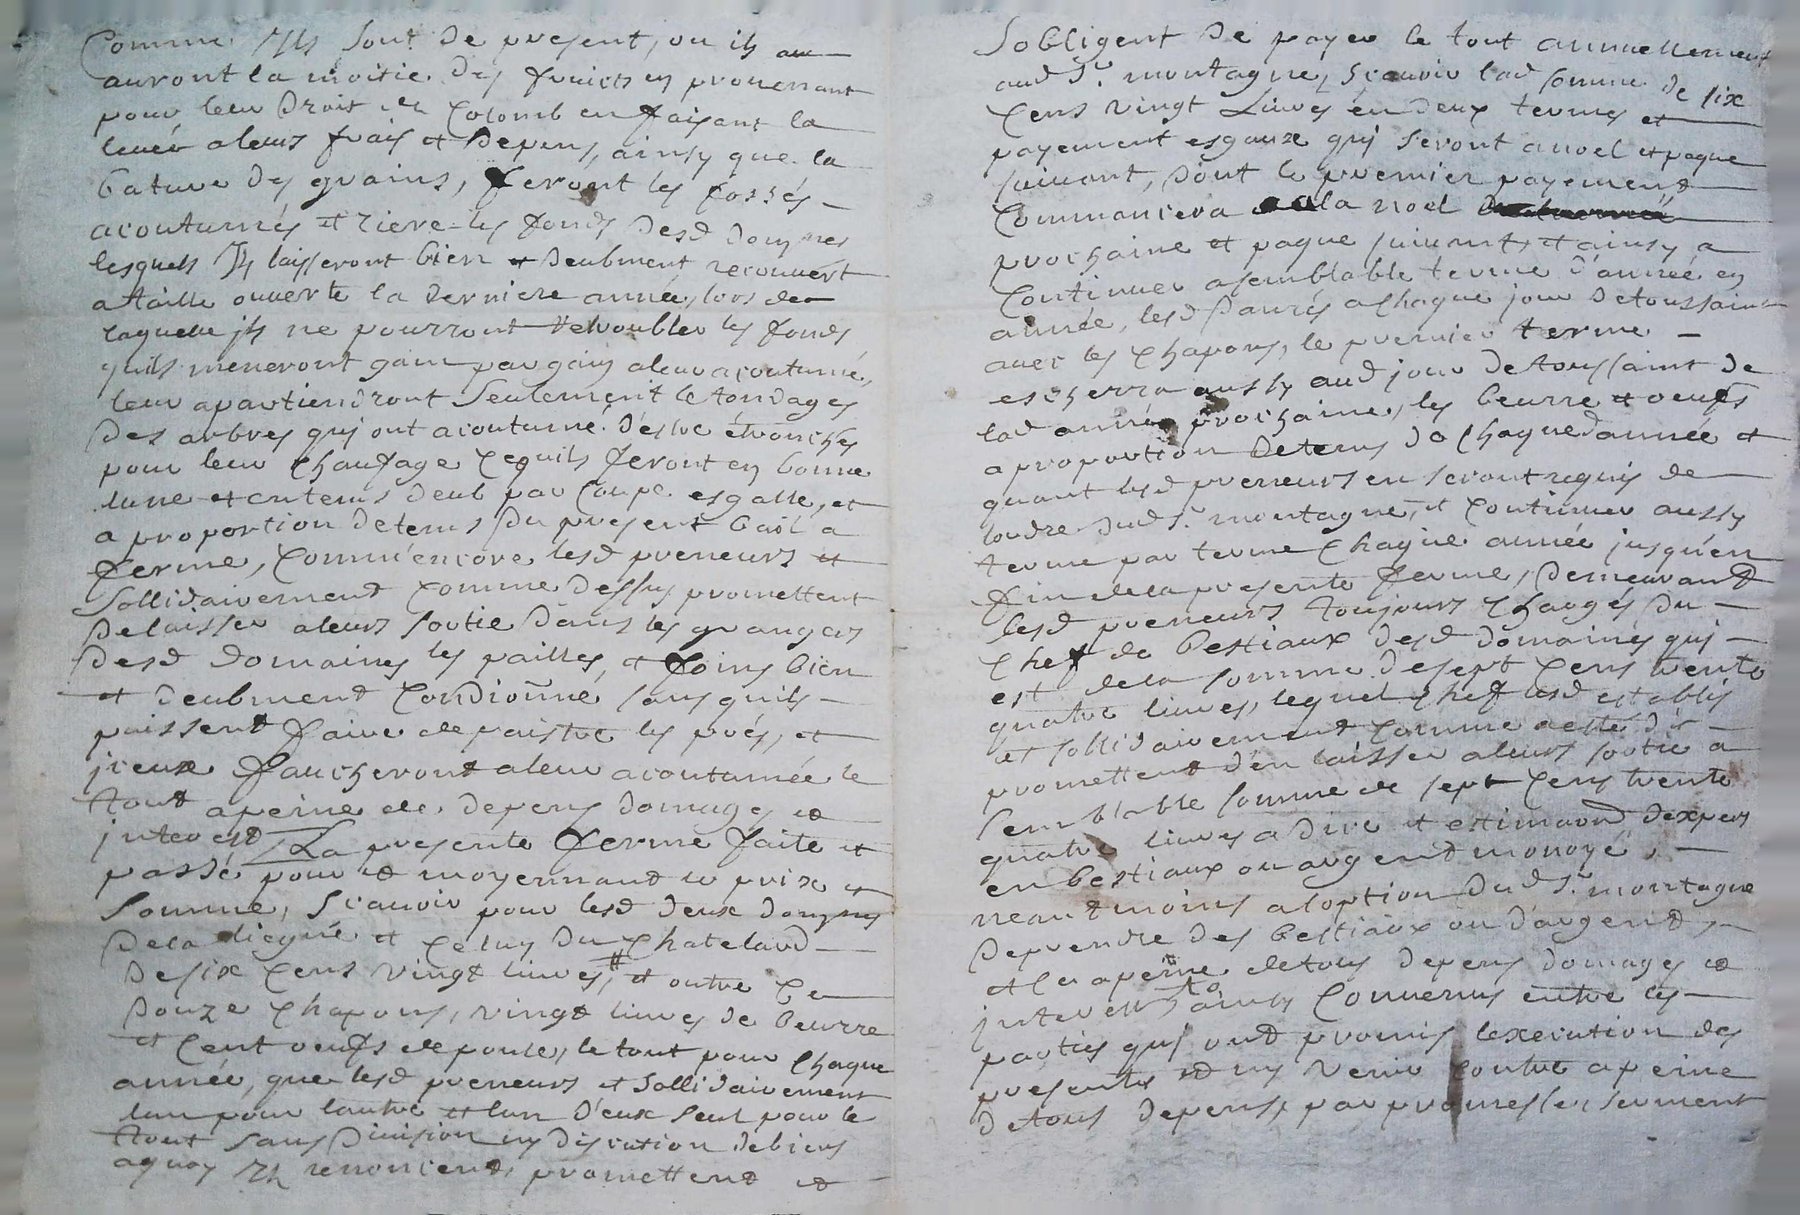 Comme Ils sont de present, ou ils au
auront la moitie des fruicts en provenant
pour leur droit de Colomb en faisant la
levée a leurs frais et depens, ainsy que la
bature des grains, feront les fossés
acoutumés et riere les fonds desd domaines
lesquels Ils laisseront bien et deubment recouvert
a taille ouverte la derniere année, lors de
laquelle ils ne pourront retroubler les fonds
quils meneront gain par gain a leur acoutumé,
leur apartiendront seulement le tondages
des arbres qui ont acoutumé d'estre etronchés
pour leur chaufage ce quils feront en bonne
lune et en tems deub par coupe esgalle, et
a proportion de tems du present bail a
ferme, comm'encore lesd preneurs et
sollidairement comme dessus promettent
delaisser a leurs sortie dans les granges
desd domaines les pailles, et foins bien
et deubment condionné, sans quils
puissent faire depaistre les prés, et
iceux faucheront a leur acoutumée le
tout a peine de depens domages et
interest La presente ferme faite et
passé pour et moyennant le prix et
somme, scavoir pour lesd deux domaines
dela diegne et celuy du Chatelard
de six cens vingt livres,# et outre ce
douze chapons, vingt livres de beurre
et cent oeufs de poule, le tout pour chaque
année, que lesd preneurs et sollidairement
lun pour lautre et lun d'eux seul pour le
tout sans division ny discution de biens
a quoy Ils renoncent, promettent et
sobligent de payer le tout annuellement
aud Sr. montagne, scavoir lad somme de six
cens vingt Livres en deux termes et
payement esgaux qui seront a noel et paque
suivant, dont le premier payement
commancera a la noel
prochaine et paque suivant, et ainsy a
continuer a semblable terme d'année en
année, lesd a chaque jour de toussaint
avec les chapons, le premier terme
escherra aussy aud jour de toussaint de
lad année prochaine, les beurre et oeufs
a proportion de tems de chaque d'année et
quant lesd preneurs en seront requis de
lordre dud Sr. montagne, et continuer aussy
terme par terme chaque année jusqu'en
fin de la presente ferme, demeurant
lesd preneurs toujours chargés du
chef de bestiaux desd domaines qui
est de la somme de sept cens trente
quatre livres, lequel chef lesd establis
et sollidairement comme
promettent d'en laisser a leurs sortie a
semblable somme de sept cens trente
quatre livres a dire et estimaon d'expers
en bestiaux ou argent monoyé,
neantmoins a loption dud Sr. montagne
deprendre des bestiaux ou d'argent,
et ce a peine de tous depens domages et
interest ainsy convenus entre les
parties qui ont promis lexecution des
presentes et ny venir contre a peine
de tous depens, par promesse, serment